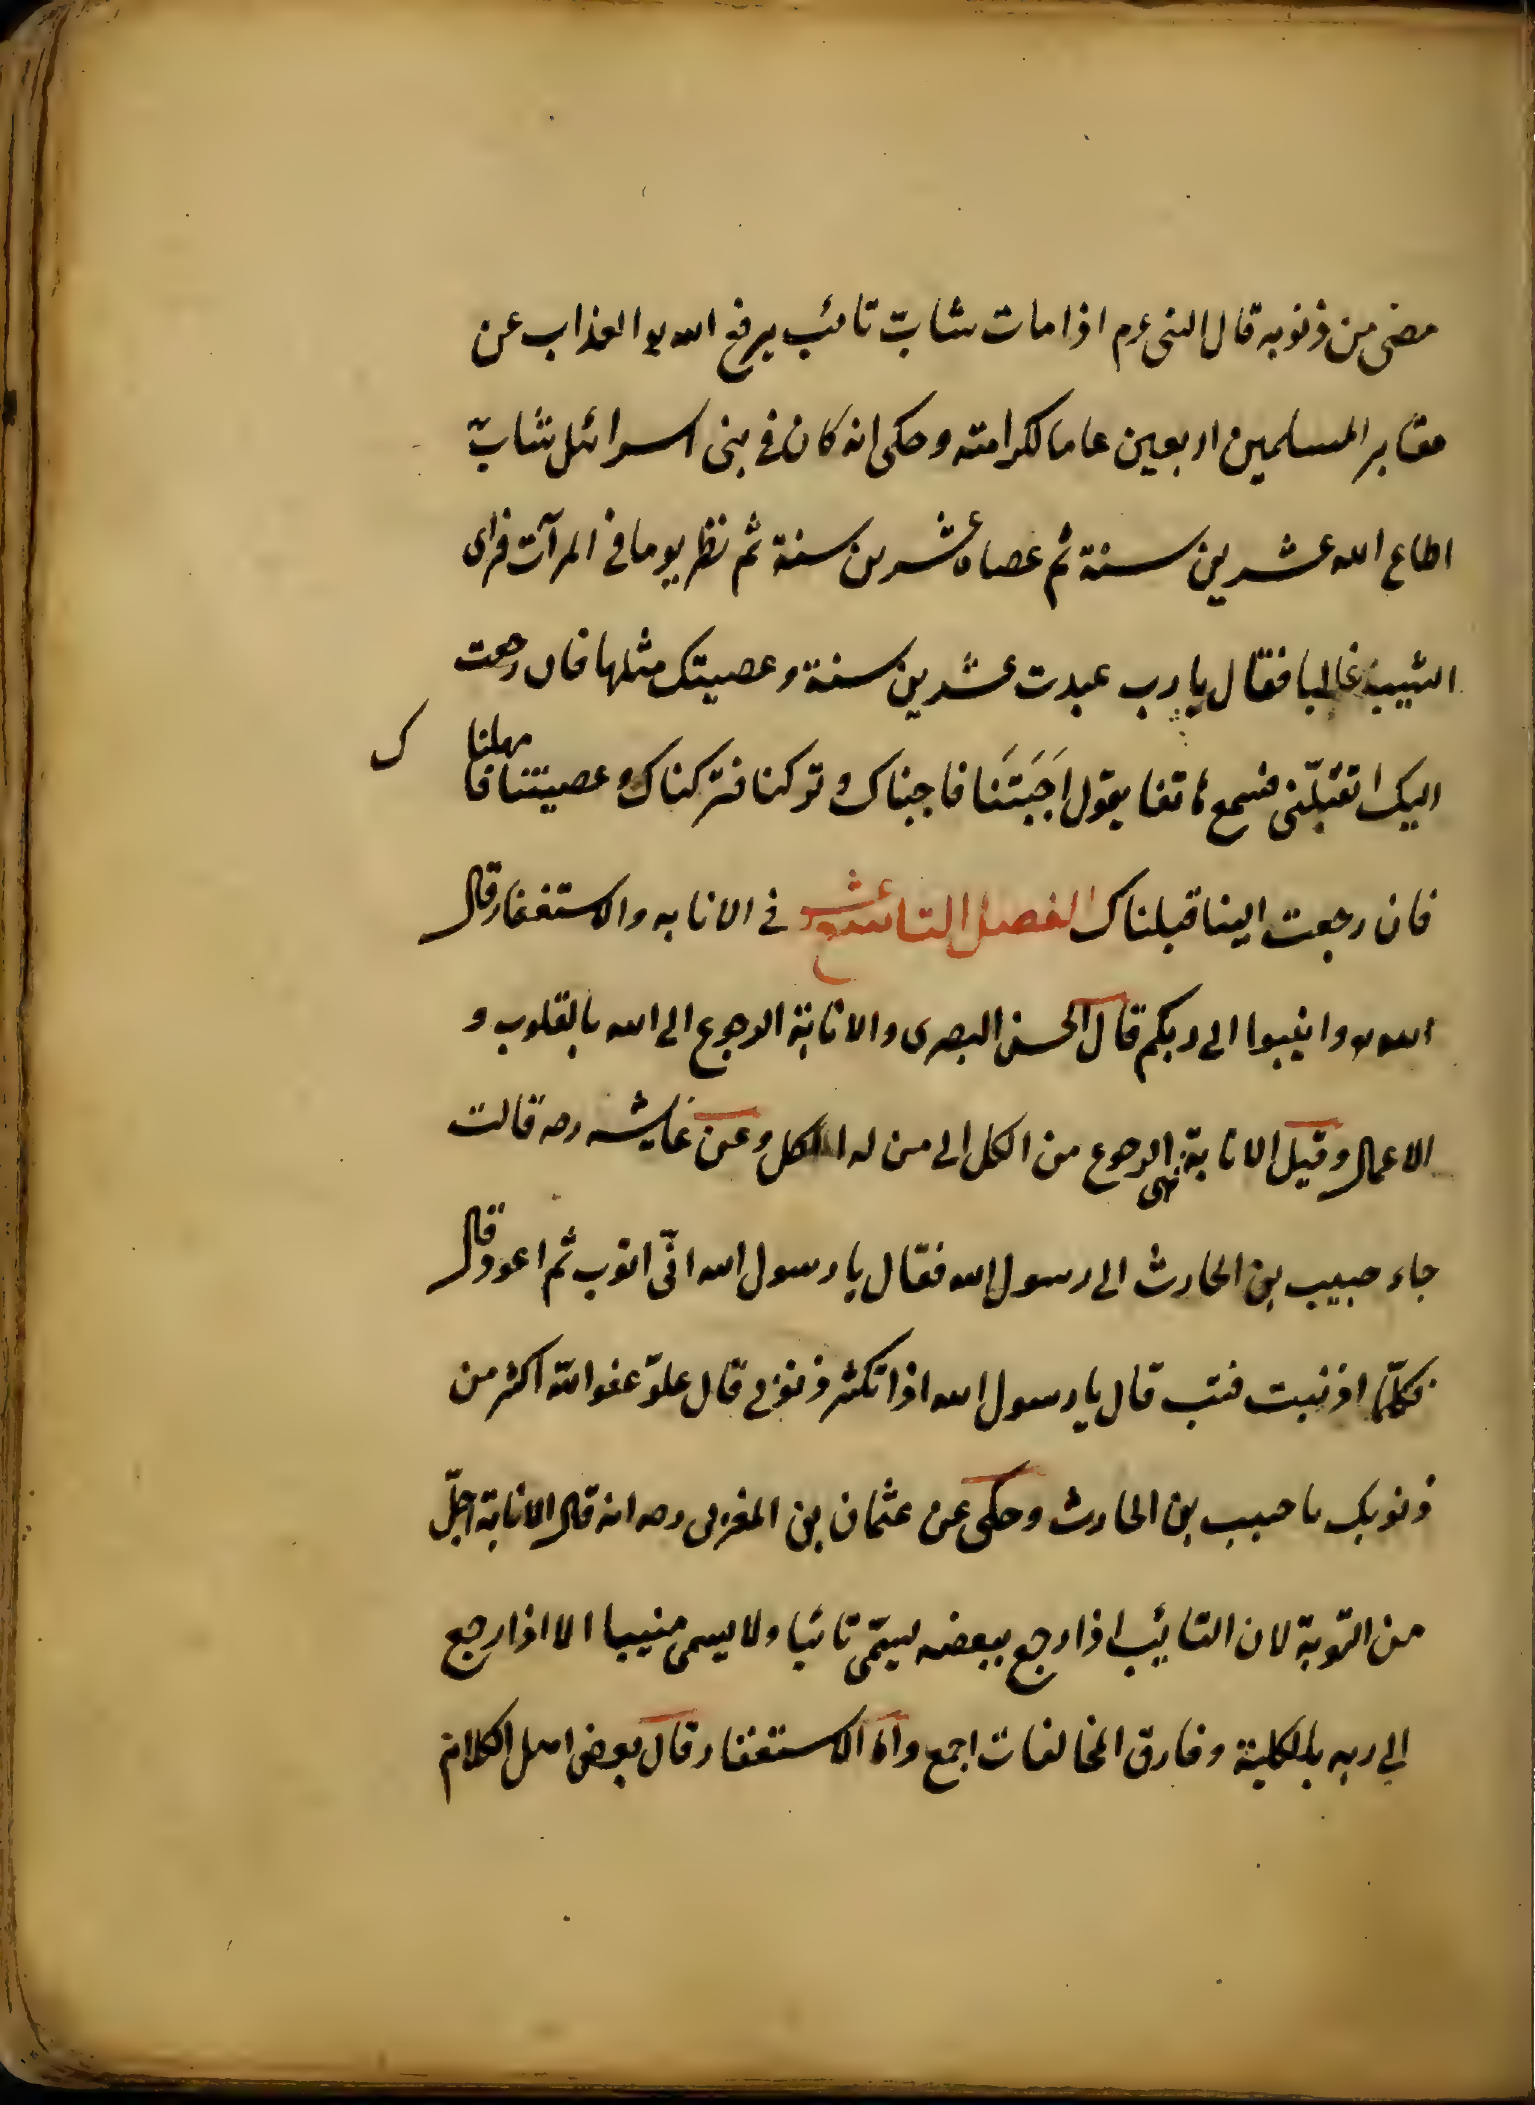 مضى من ذنوبه قال النبى عم اذا مات شابّ تائب يرفع الله العذاب عن
مقابر المسلمين اربعين عاما لكرامته وحكى انه كان فى بنى اسرائل شابّ
اطاع الله عشرين سنة ثم عصاه عشرين سنة ثم نظر يوما فى المرآت فراى
الشيب غالبا فقال يا رب عبدت عشرين سنة وعصيتك مثلها فان رجعت
اليك اتقبلّنى فسمع هاتفا يقول اَجَبَتَنا فاجبناك وتركنا فتركناك وعصيتنا فامهلنا ك
فان رجعت الينا قبلناك الفصل التاسع عشر فى الانابه والاستغفار قال
الله وانيبوا الى ربكم قال الحسن البصرى والانابة الرجوع الى الله بالقلوب و
الاعمال وقيل الانابة هى الرجوع من الكل الى من له الكل وعن عايشه رصه قالت
جاء حبيب بن الحارث الى رسول الله فقال يا رسول الله انّى اتوب ثم اعود قال
فكلّما اذنبت فتب قال يا رسول الله اذا تكثر ذنوبى قال عفو الله اكثر من
ذنوبك يا حبيب بن الحارث وحكى عن عثمان بن المغربى رصه انه قال الانابة اجلّ
من التوبة لان التائب اذا رجع ببعضه يسمّى تائبا ولا يسمى منيبا الا اذا رجع
الى ربه بالكلية وفارق المخالفات اجمع واما الاستغفار قال بعض اهل الكلام